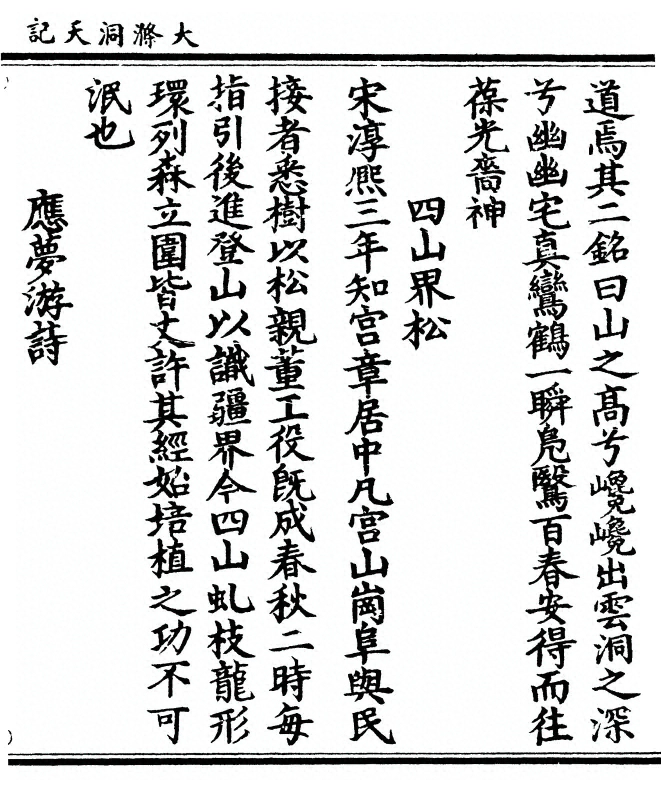 大滌洞天記
道焉其二銘曰山之髙兮巉巉出雲洞之深
兮幽幽宅真鸞鶴一瞬鳬鷖百春安得而往
葆光裔神
四山界松
宋淳熈三年知宫章居中凡宫山崗阜與民
接者悉樹以松親董工役旣成春秋二時每
指引後進登山以識疆界今四山虬枝龍形
環列森立圍皆丈許其經始培植之功不可
泯也
應夢游詩